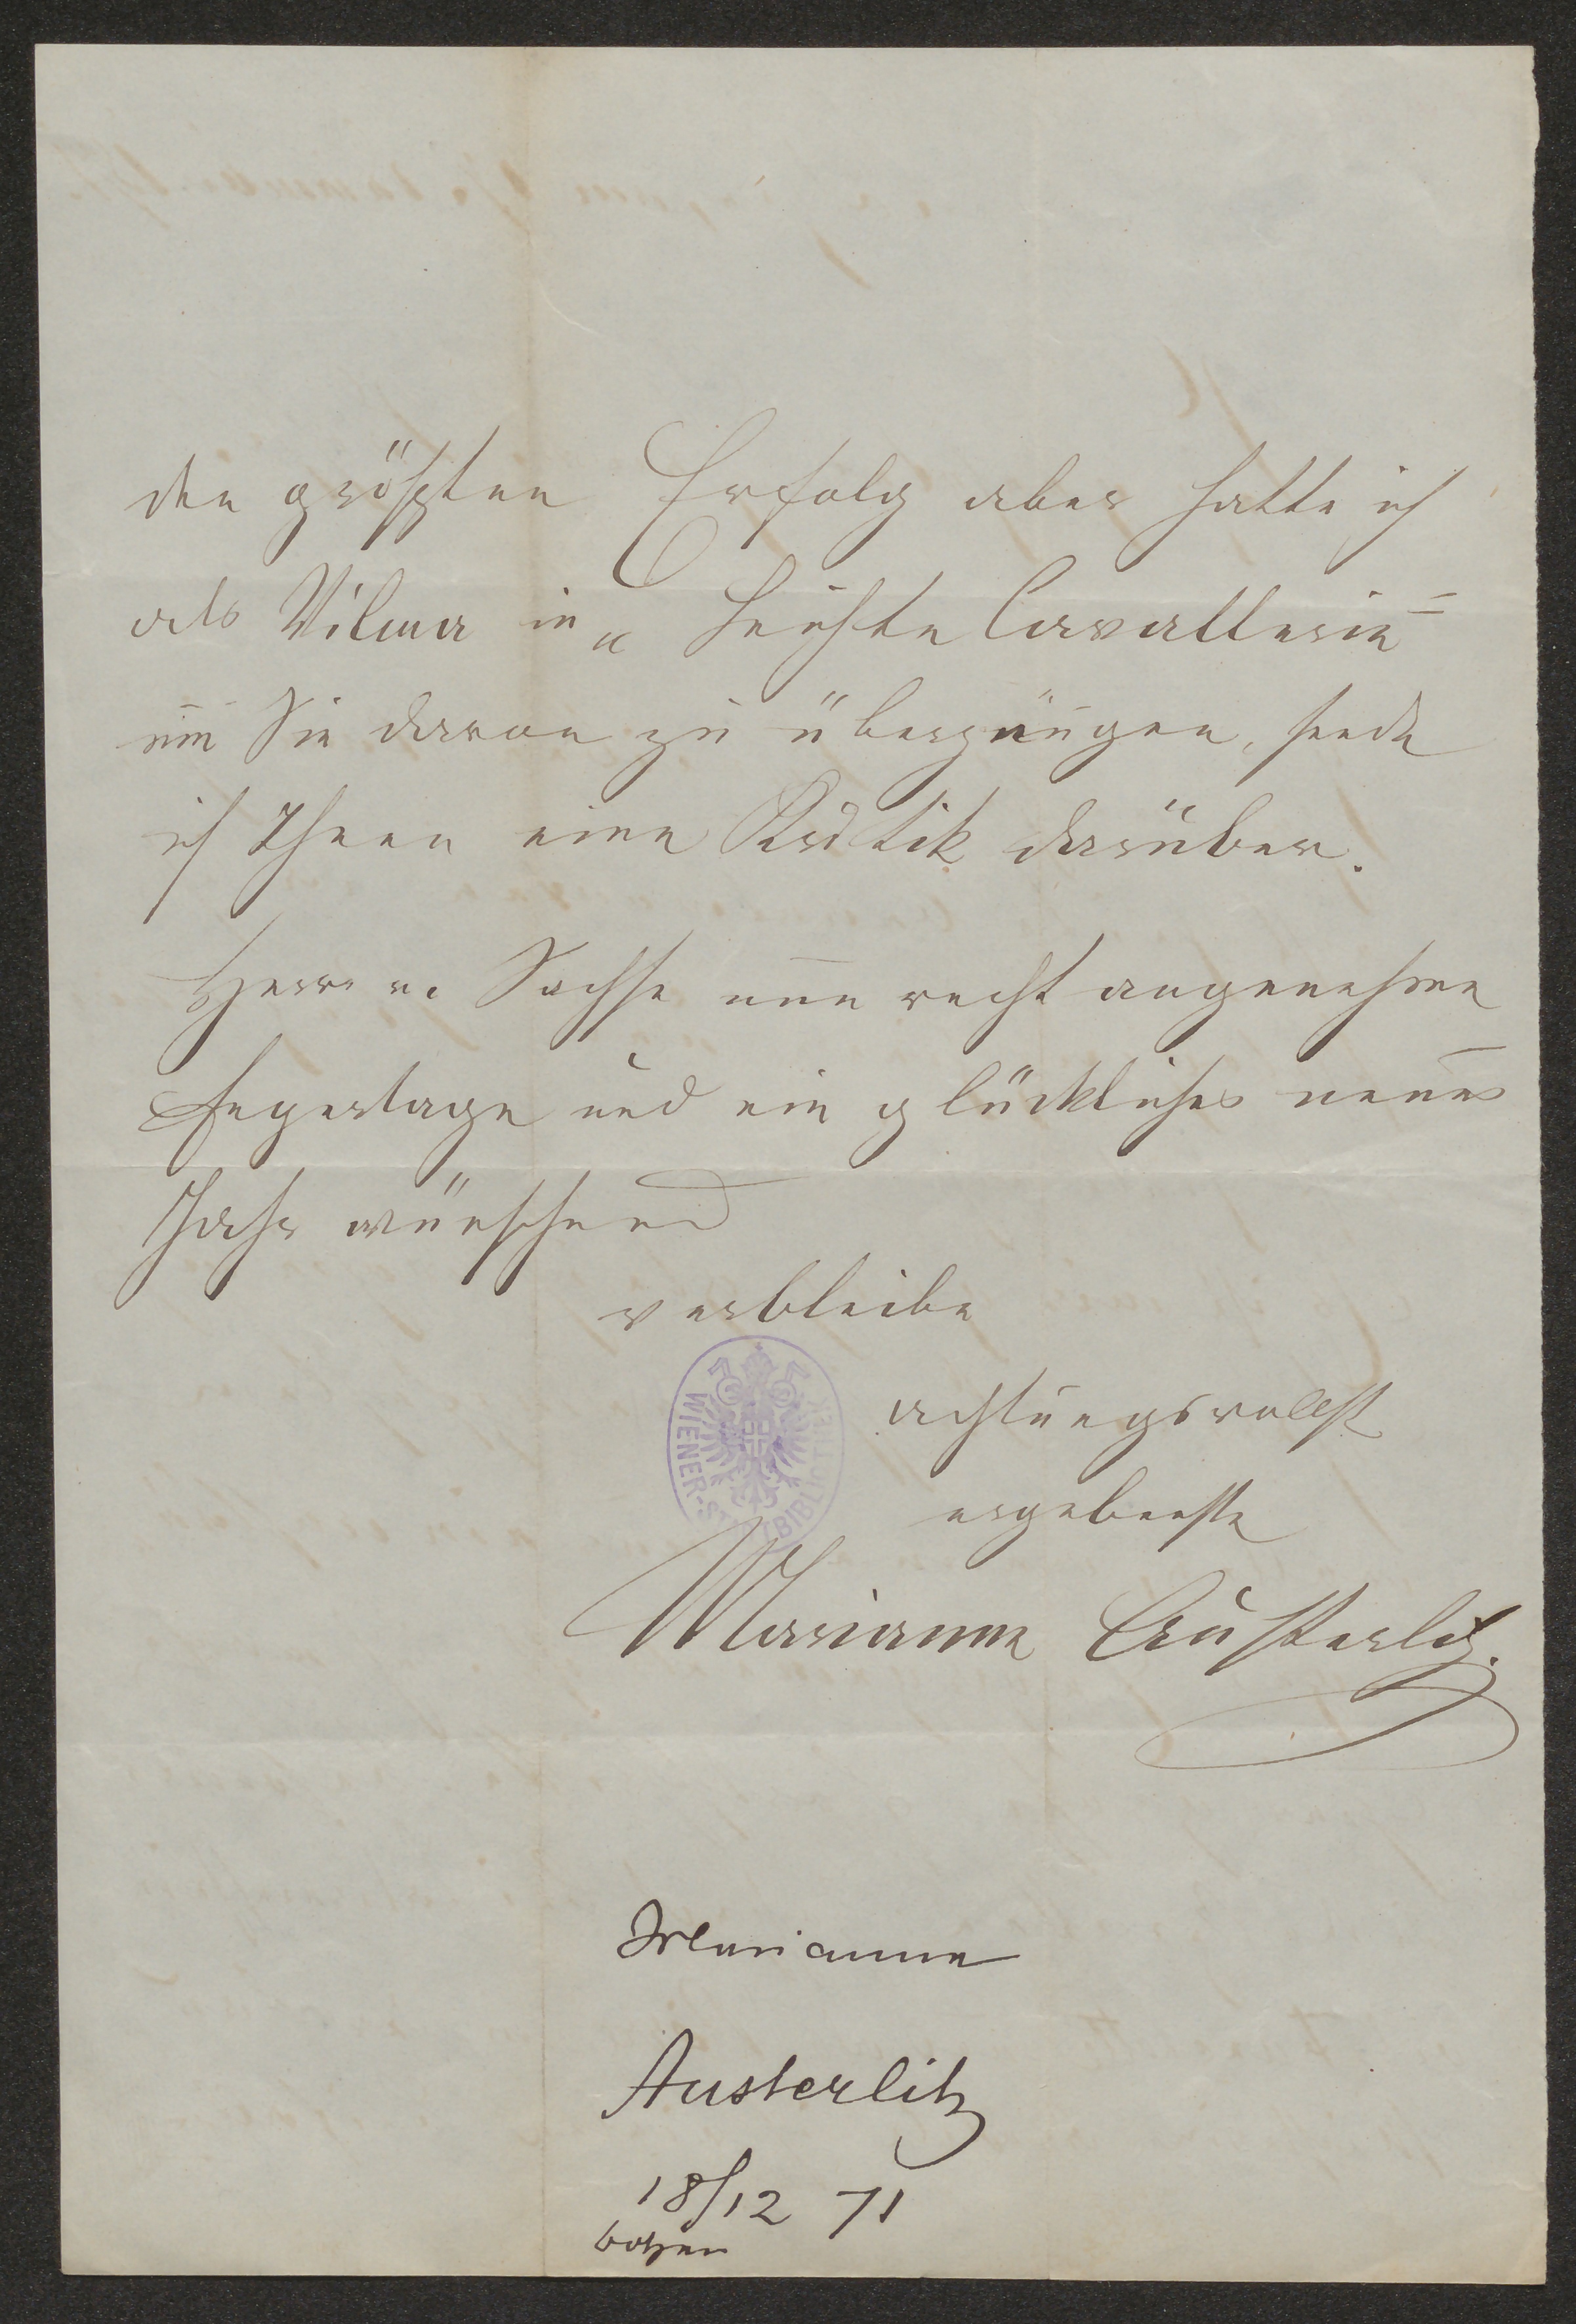 den größten Erfolg aber hatte ich
als Vilma in „Leichte Cavallerie“
um Sie davon zu überzeugen, sende
ich Ihnen eine Kritik darüber.
Herrn v. Sachse nun recht angenehme
Feyertage und ein glückliches neues
Jahr wünschend
verbleibe
achtungsvollst
ergebenste
Marianne Austerlitz.
WIENER-STADTBIBLIOTHEK
Marianne
Austerlitz
18/12 71
botzen